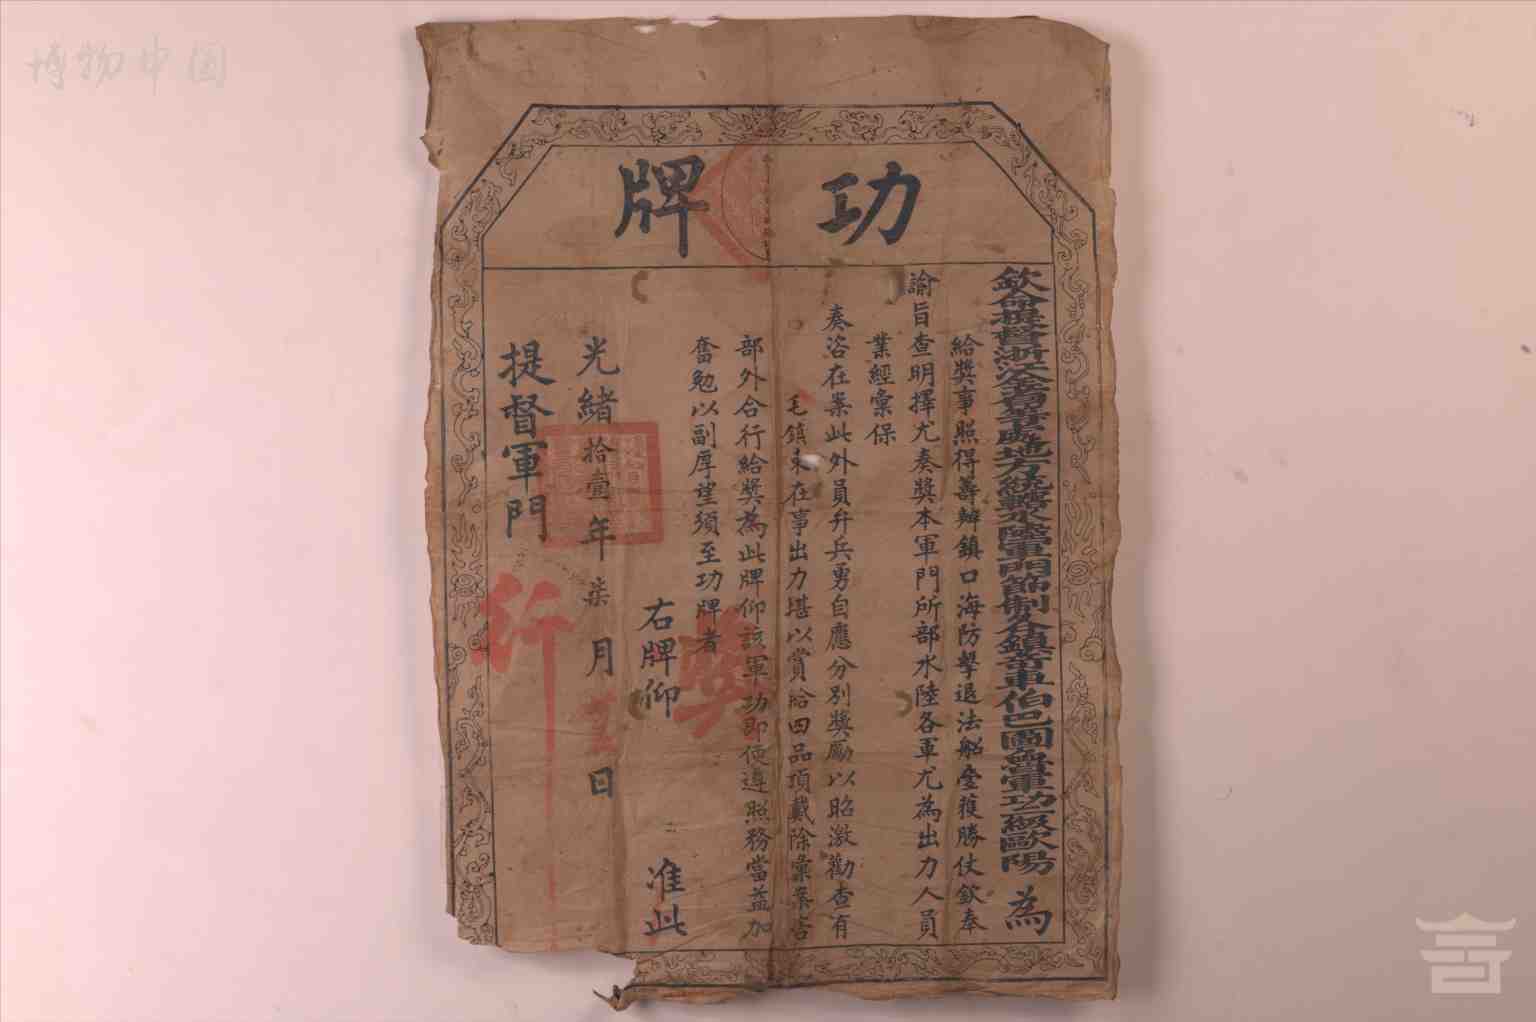 博物中国
功牌
欽命提督浙江全省等處地方統轄水陸軍門節制各鎮哲車伯巴圖魯軍功一級歐陽 為
給獎事照得籌辦鎮口海防擊退法船疊獲勝仗欽奉
諭旨查明擇尤奏獎本軍門所部水陸各軍尤為出力人員
業經彙保
奏咨在案此外員弁兵勇自應分別獎勵以昭激勸查有
毛鎮東在事出力堪以賞給四品頂戴除彙案咨
部外合行給獎為此牌仰該軍功即便遵照務當益加
奮勉以副厚望須至功牌者
右牌仰 准此
光緒拾壹年柒月 日
提督軍門
行
獎